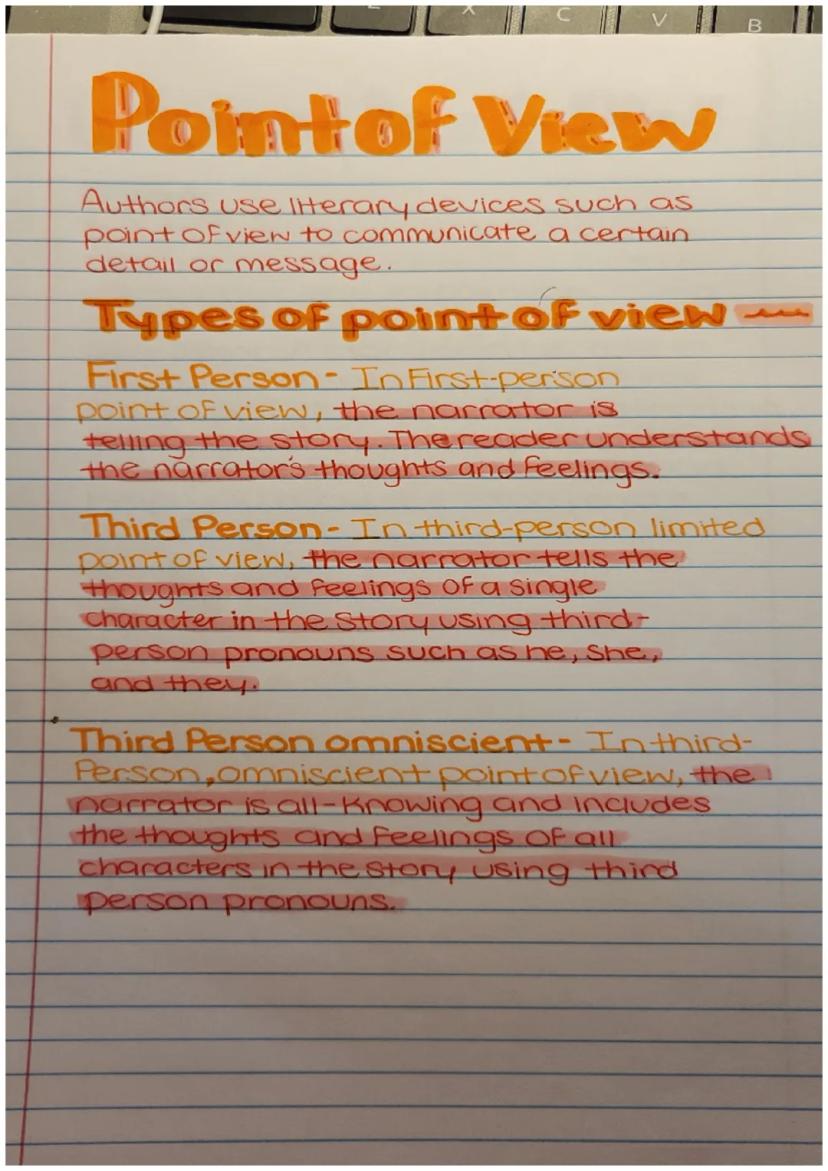 X
C
V
B
Point of View
Authors use literary devices such as
point of view to communicate a certain
detail or message.
Types of point of view
First Person - In First-person
point of view, the narrator is
telling the story. The reader understands
the narrator's thoughts and feelings.
Third Person - In third-person limited
point of view, the narrator tells the
thoughts and feelings of a single
character in the story using third-
person pronouns such as he, she,
and they.
Third Person omniscient - In third-
Person, omniscient point of view, the
narrator is all-knowing and includes
the thoughts and feelings of all
characters in the story using third
person pronouns.